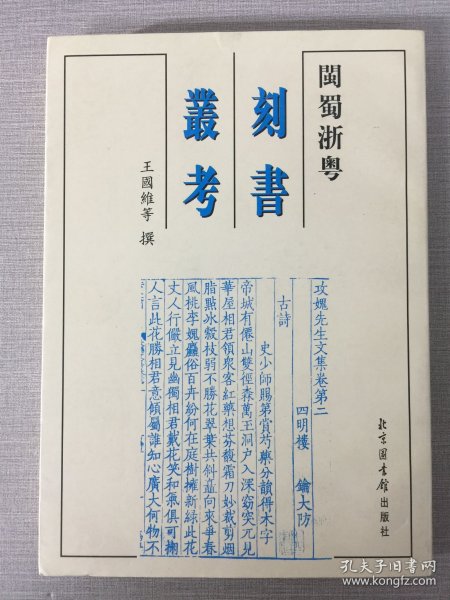 閩蜀浙粵
刻書
叢考
王國維等 撰
攻媿先生文集卷第二
四明樓 鑰大防
古詩
史少師賜第賞芍藥分韻得木字
帝城有僊山雙徑森萬玉洞户入深窈突兀見
華屋相君領衆客紅藥想芬馥霜刀妙裁剪烟
脂點冰縠枝弱不勝花翠葉共斜矗向來爭春
風桃李媿麤俗百卉紛何在庭樹擁新綠此花
丈人行儼立見幽獨相君戴花笑和氣俱可掬
人言此花勝相君意傾屬誰知心廣大何物不
北京圖書館出版社
孔夫子旧书网
book.kongfz.com